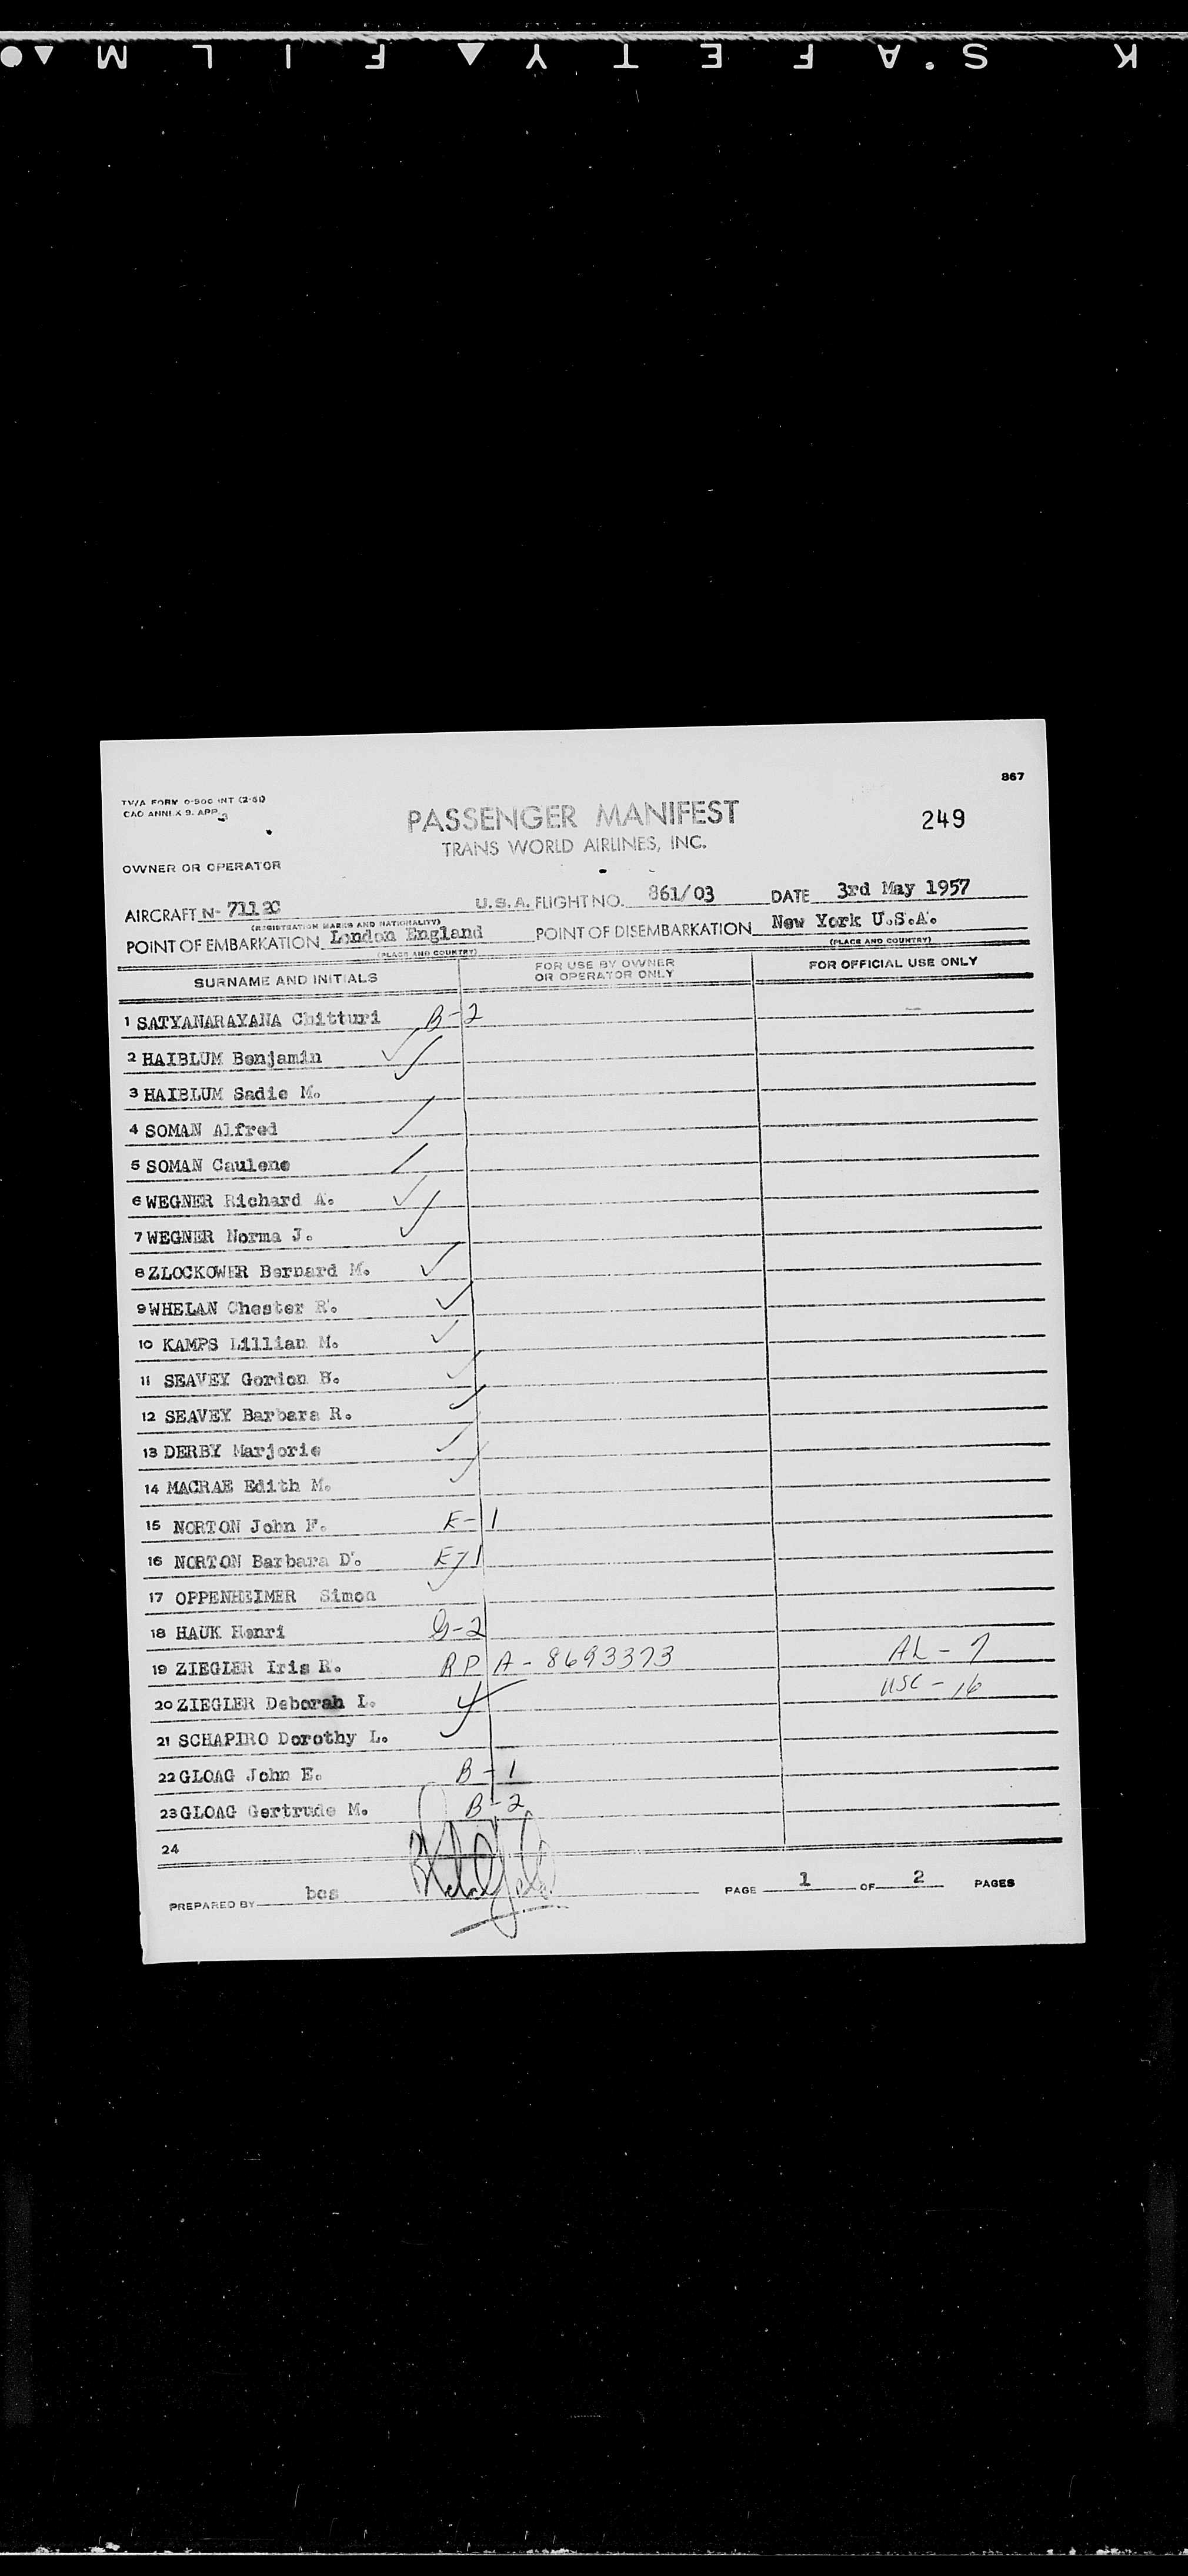 K S.AFETY▲FILM▲●
867
TWA FORM O-500 INT (2-51)
CAO ANNEX 9. APP. 3
PASSENGER MANIFEST
249
TRANS WORLD AIRLINES, INC.
OWNER OR OPERATOR
AIRCRAFT N- 7112C U.S.A. FLIGHT NO. 861/03 DATE 3rd May 1957
(REGISTRATION MARKS AND NATIONALITY)
POINT OF EMBARKATION London England POINT OF DISEMBARKATION New York U.S.A.
(PLACE AND COUNTRY) (PLACE AND COUNTRY)
SURNAME AND INITIALS FOR USE BY OWNER OR OPERATOR ONLY FOR OFFICIAL USE ONLY
1 SATYANARAYANA Chitturi B-2
2 HAIBLUM Benjamin ✓
3 HAIBLUM Sadie M. ✓
4 SOMAN Alfred
5 SOMAN Caulene
6 WEGNER Richard A. ✓
7 WEGNER Norma J. ✓
8 ZLOCKOWER Bernard M. ✓
9 WHELAN Chester R. ✓
10 KAMPS Lillian M. ✓
11 SEAVEY Gordon B. ✓
12 SEAVEY Barbara R. ✓
13 DERBY Marjorie ✓
14 MACRAE Edith M. ✓
15 NORTON John F. E-1
16 NORTON Barbara D. E-1
17 OPPENHEIMER Simon ✓
18 HAUK Henri G-2
19 ZIEGLER Iris R. RP A-8693373 AL-7
20 ZIEGLER Deborah L. ✓ USC-16
21 SCHAPIRO Dorothy L. ✓
22 GLOAG John E. B-1
23 GLOAG Gertrude M. B-2
24
PREPARED BY bcs PAGE 1 OF 2 PAGES